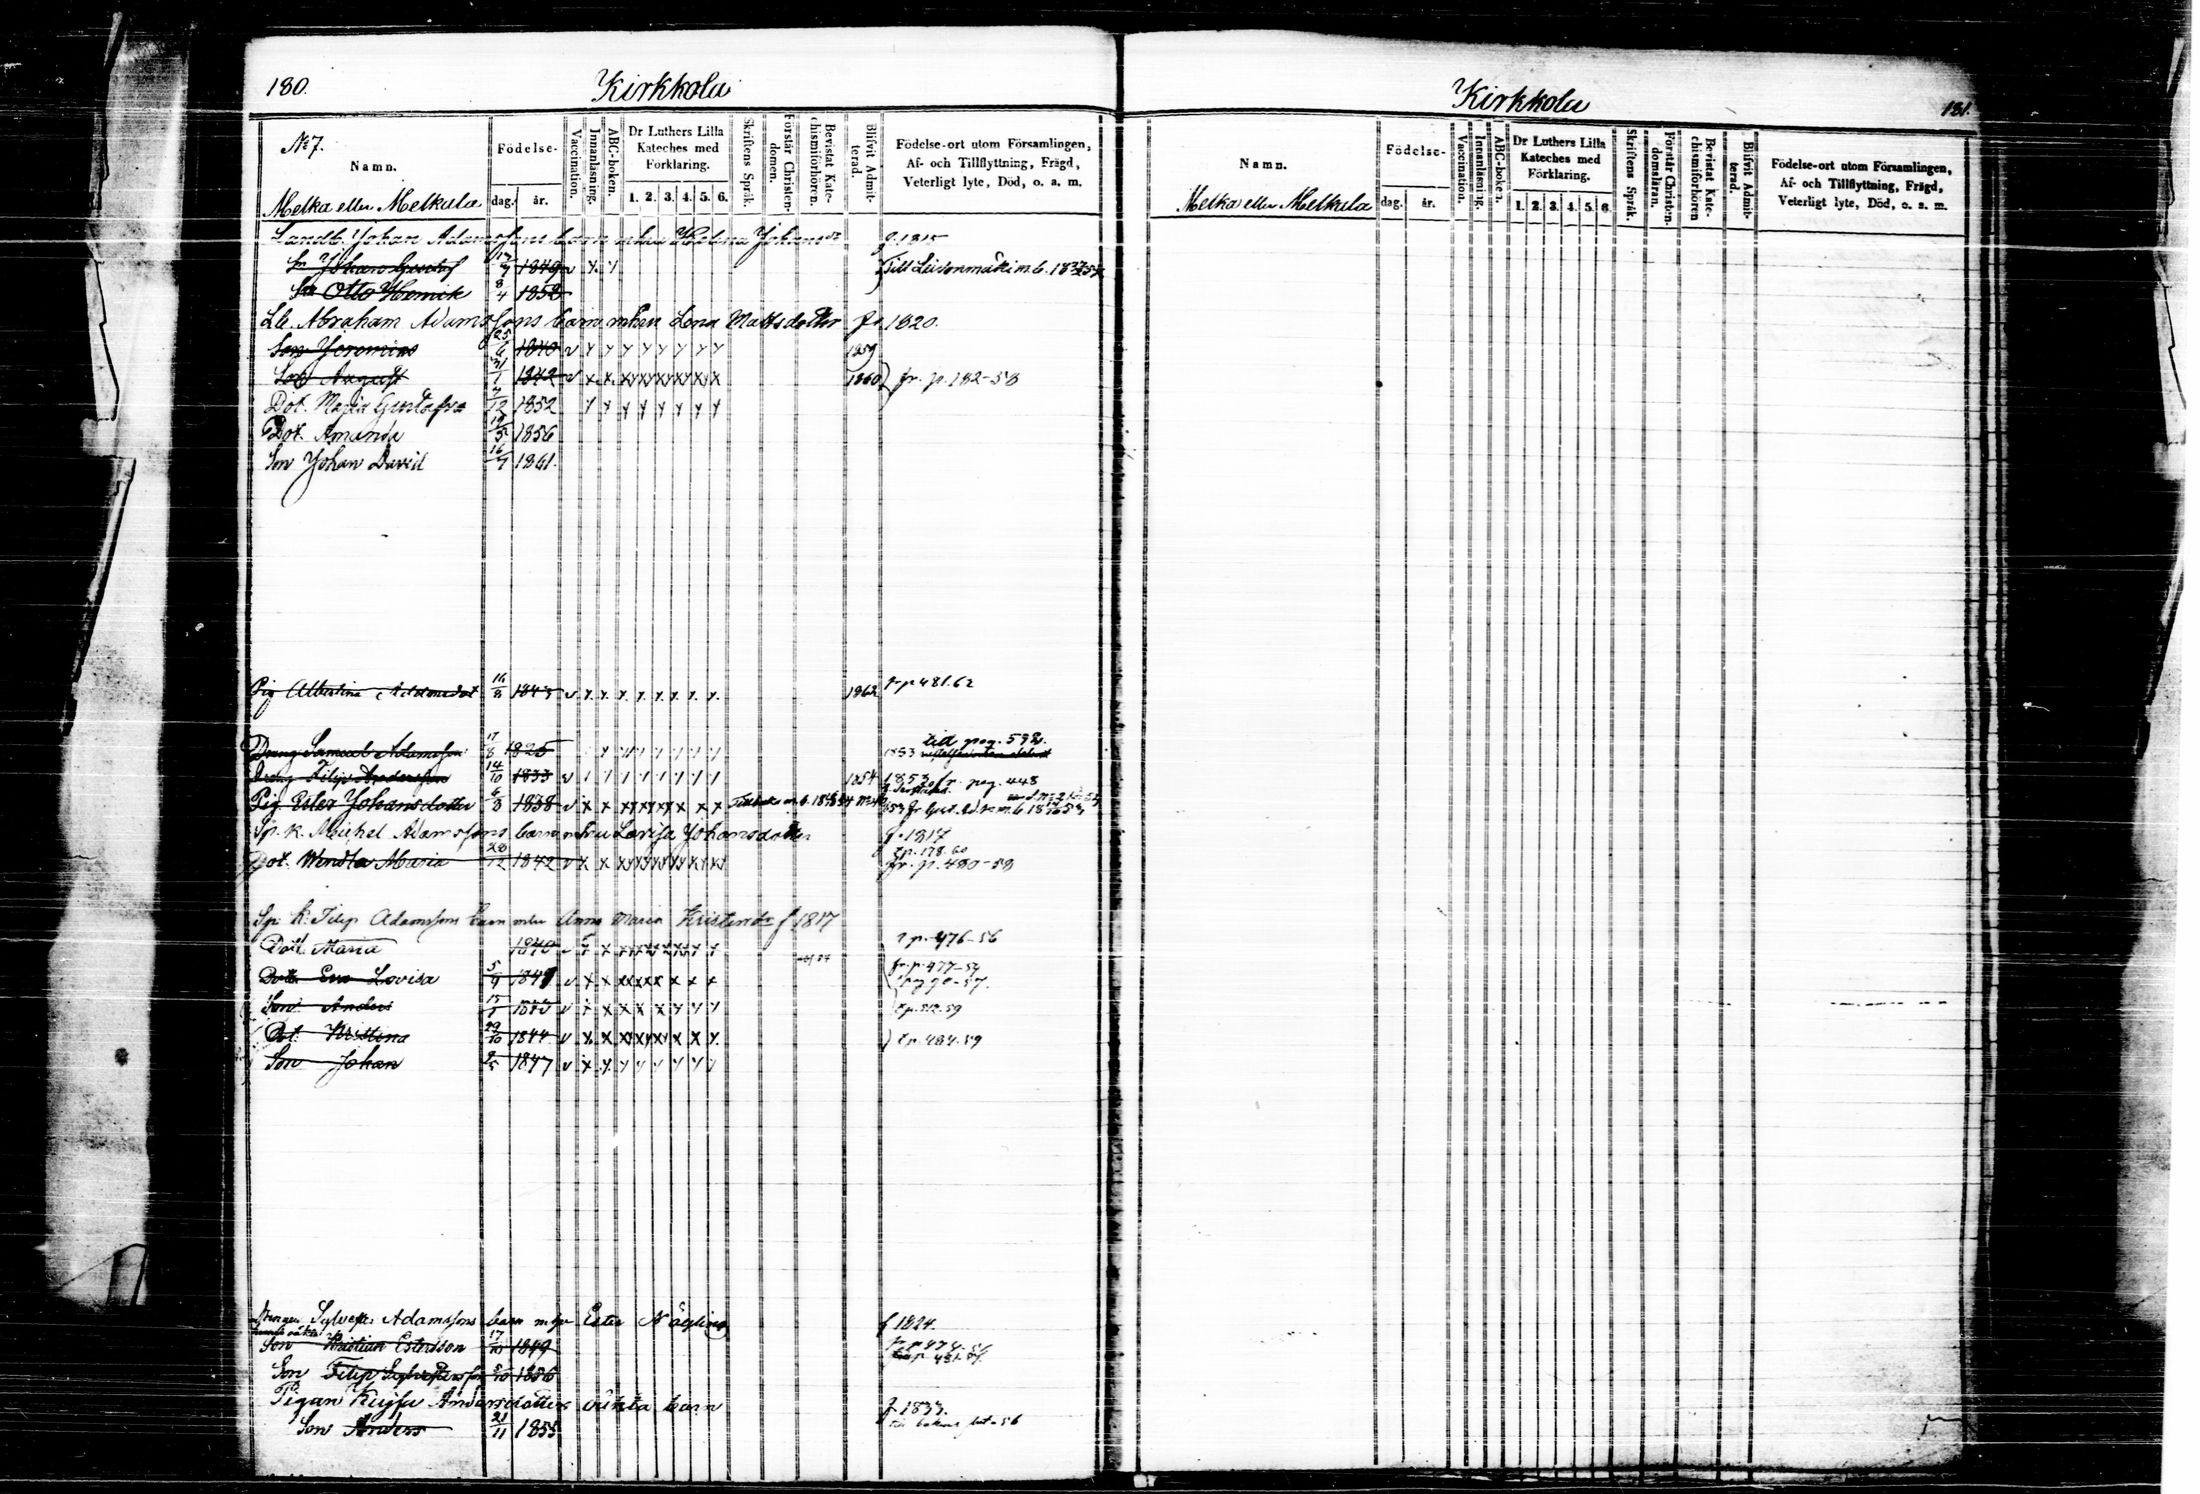 180. Kirkkola
No 7.
Namn. Födelse- dag. år. Vaccination. Innanläsning. ABC-boken. Dr Luthers Lilla Kateches med Förklaring. 1. 2. 3. 4. 5. 6. Skriftens Språk. Förstår Christendomen. Bevistat Katechismiförhören. Blifvit Admitterad. Födelse-ort utom Församlingen, Af- och Tillflyttning, Frägd, Veterligt lyte, Död, o. a. m.
Melka eller Melkula
Landb. Johan Adamssons barn m hu Helena Johansdr f. 1815
Sn Johan Gustaf 17/7 1849 v
Till Leivonmäki m. b.
Sn Otto Henrik 8/4 1852
Lb. Abraham Adamssons barn m hu Lena Mattsdotter f. 1820.
Son Jeremias 25/6 1840 v 1859
Son August 31/1 1842 v 1860 fr. p. 182-58
Dot. Maria Gustafva 7/12 1852
Dot. Amanda 19/5 1856
Son Johan David 16/7 1861.
Pig Albertina Adamsdot 16/8 1843 v 1862 fr p 481.62
Dreng Samuel Adamsson 17/8 1825 till pag. 592.
1853
Dreng Filip Andersson 14/10 1833 v 1854 1853 fr. pag. 448
Pig Ester Johansdotter 6/3 1838 v
Sp. k. Michel Adamssons barn m hu Lovisa Johansdotter f. 1817
t p. 178.60
Dot. Wendla Maria 28/12 1842 v fr. p. 480-59
Sp. k. Filip Adamssons barn m hu Anna Maria Kristersdr f 1817
Dott. Maria 1840 v t p. 476-56
Dott. Eva Lovisa 5/9 1841 v fr. p. 477-57
Son Anders 15/1 1843 v t p. 512.59
Dot. Kristina 29/10 1844 v t p. 484.59
Son Johan 2/5 1847 v
Drengen Sylvester Adamssons barn m hu Ester Nägling f 1824.
Son Kristian Estersson 17/10 1849
Son Filip Sylvestersson 5/10 1856
Pigan Kajsa Andersdotters oäkta barn f 1833.
Son Anders 21/11 1855
Kirkkola 181.
Namn. Födelse- dag. år. Vaccination. Innanläsning. ABC-boken. Dr Luthers Lilla Kateches med Förklaring. 1. 2. 3. 4. 5. 6. Skriftens Språk. Förstår Christendomsläran. Bevistat Katechismiförhören Blifvit Admitterad. Födelse-ort utom Församlingen, Af- och Tillflyttning, Frägd, Veterligt lyte, Död, o. s. m.
Melka eller Melkula